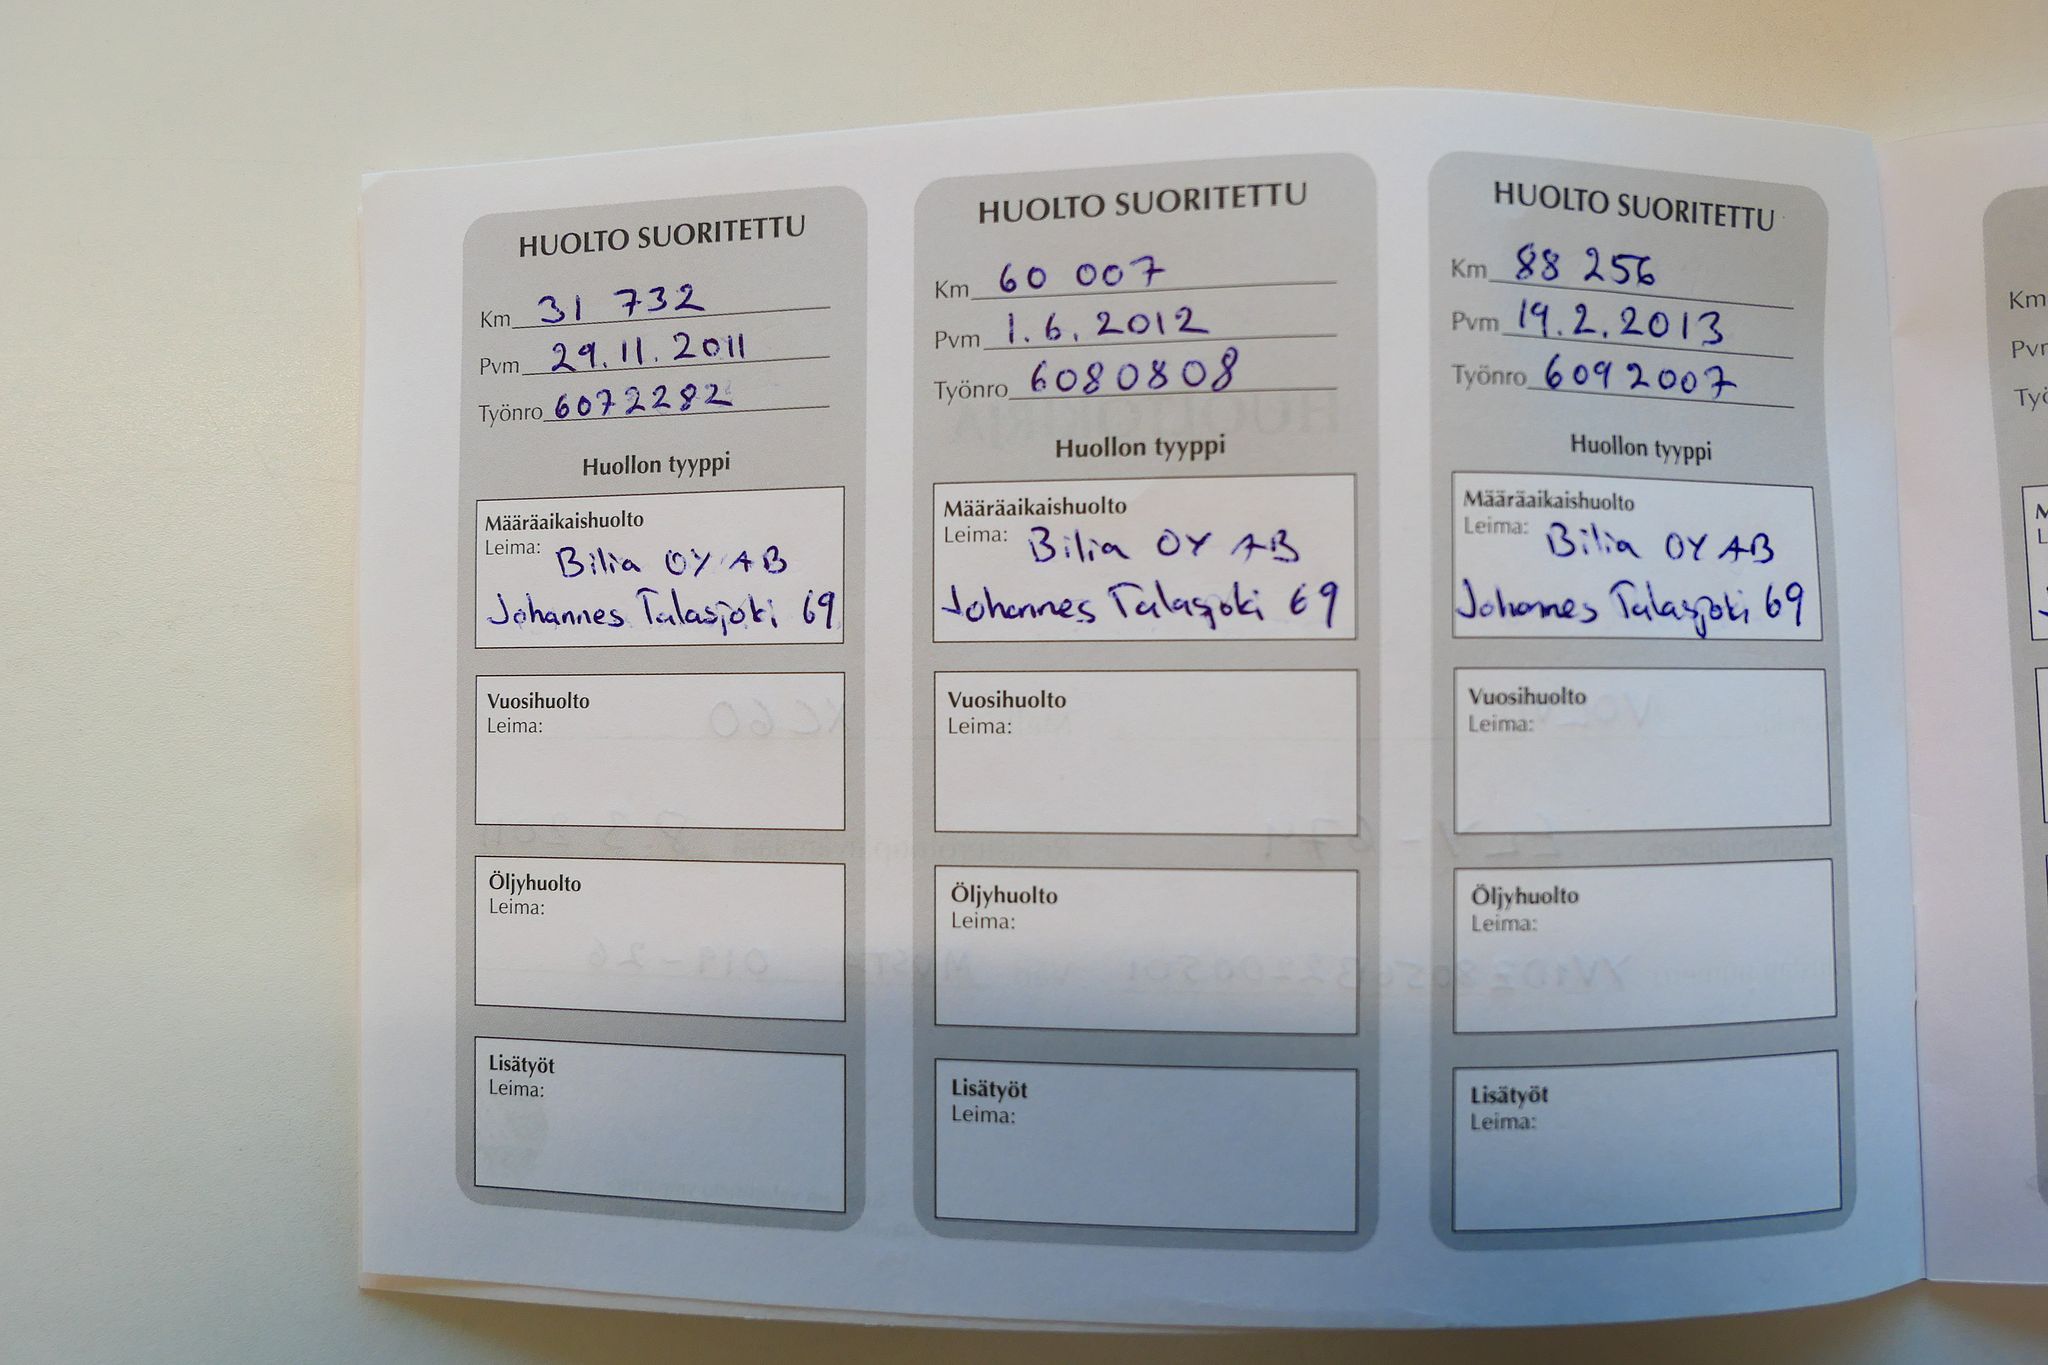 HUOLTO SUORITETTU
Km 31 732
Pvm 29.11.2011
Työnro 6072282
Huollon tyyppi
Määräaikaishuolto
Leima:
Bilia OY AB
Johannes Talasjoki 69
Vuosihuolto
Leima:
Öljyhuolto
Leima:
Lisätyöt
Leima:
HUOLTO SUORITETTU
Km 60 007
Pvm 1.6.2012
Työnro 6080808
Huollon tyyppi
Määräaikaishuolto
Leima:
Bilia OY AB
Johannes Talasjoki 69
Vuosihuolto
Leima:
Öljyhuolto
Leima:
Lisätyöt
Leima:
HUOLTO SUORITETTU
Km 88 256
Pvm 19.2.2013
Työnro 6092007
Huollon tyyppi
Määräaikaishuolto
Leima:
Bilia OY AB
Johannes Talasjoki 69
Vuosihuolto
Leima:
Öljyhuolto
Leima:
Lisätyöt
Leima:
Km